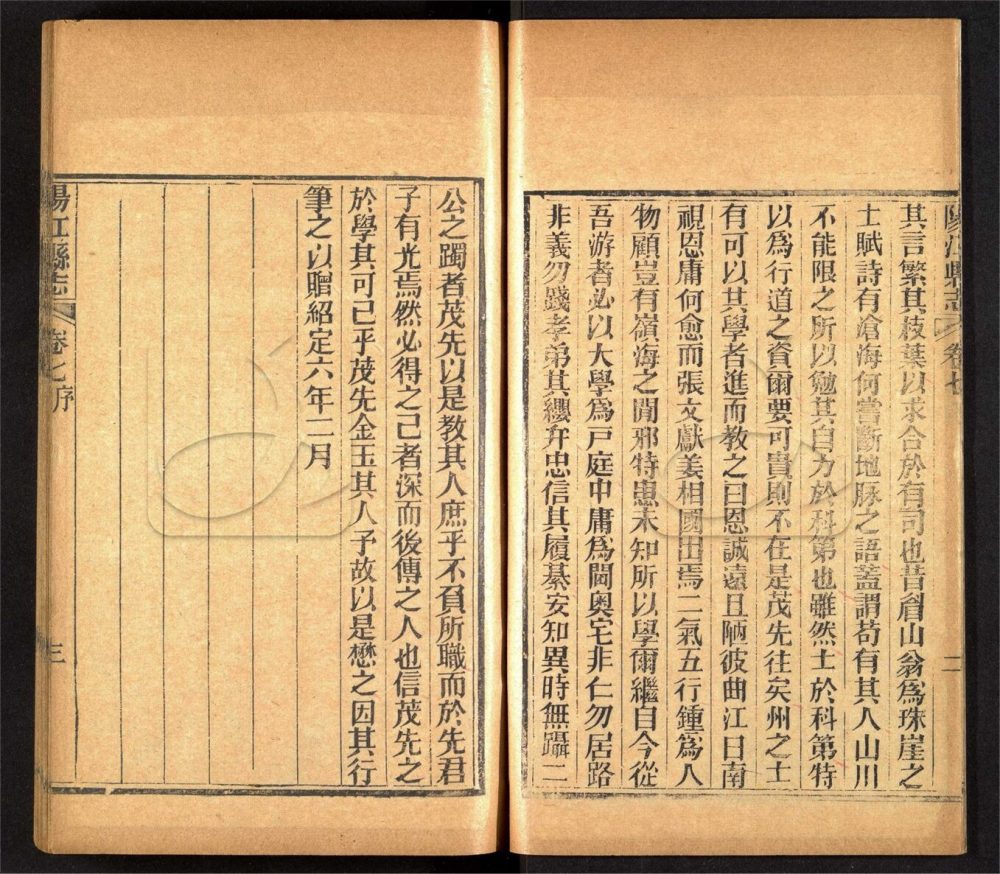 陽江縣志 卷七 二
其言繁其枝葉以求合於有司也昔眉山翁爲珠崖之
士賦詩有滄海何嘗斷地脉之語蓋謂苟有其人山川
不能限之所以勉其自力於科第也雖然士於科第特
以爲行道之資爾要可貴則不在是茂先往矣州之士
有可以其學者進而教之曰恩誠遠且陋彼曲江日南
視恩庸何愈而張文獻姜相國出焉二氣五行鍾爲人
物顧豈有嶺海之間邪特患未知所以學爾繼自今從
吾游者必以大學爲戸庭中庸爲閫奥宅非仁勿居路
非義勿踐孝弟其纓弁忠信其履綦安知異時無躡二
公之躅者茂先以是教其人庶乎不負所職而於先君
子有光焉然必得之己者深而後傳之人也信茂先之
於學其可已乎茂先金玉其人予故以是懋之因其行
筆之以贈紹定六年二月
陽江縣志 卷七序 三